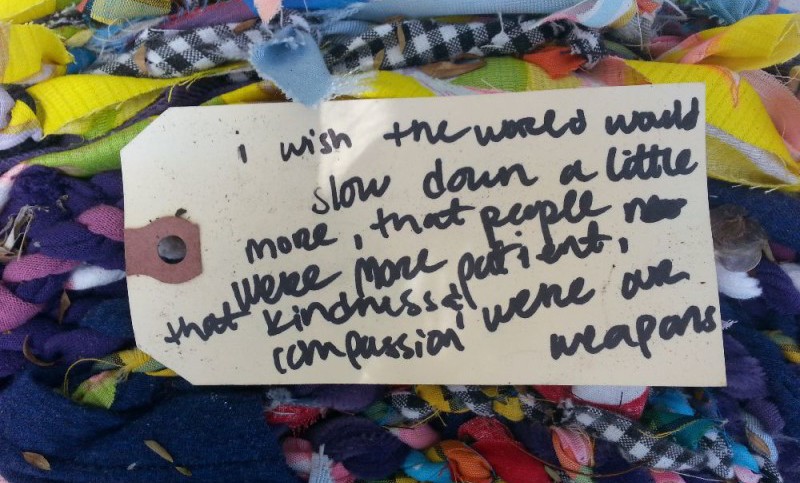 i wish the world would
slow down a little
more, that people
were more patient,
that kindness &
compassion were our
weapons